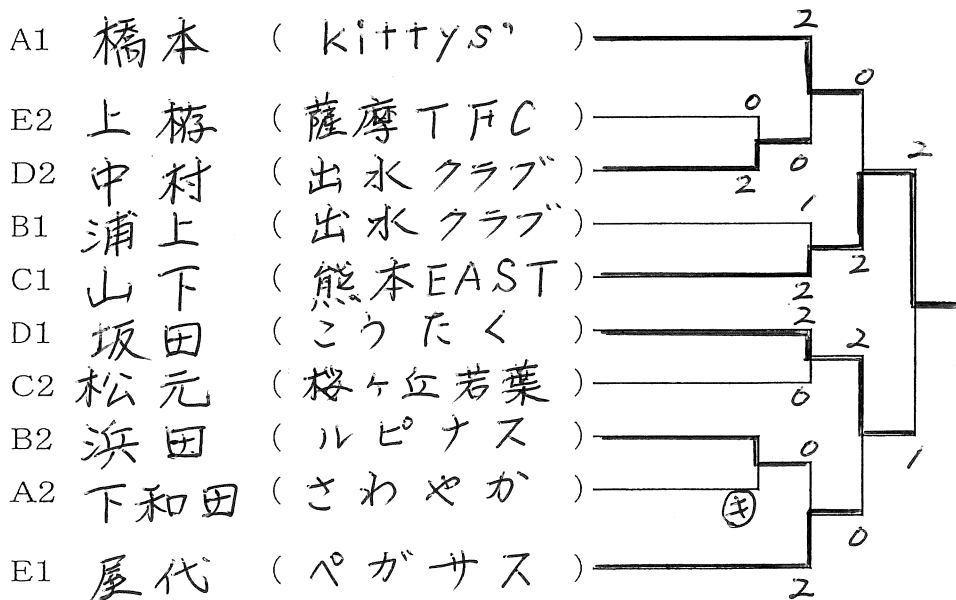 A1 橋本 ( kittys' )
E2 上栫 ( 薩摩TFC )
D2 中村 ( 出水クラブ )
B1 浦上 ( 出水クラブ )
C1 山下 ( 熊本EAST )
D1 坂田 ( こうたく )
C2 松元 ( 桜ヶ丘若葉 )
B2 浜田 ( ルピナス )
A2 下和田 ( さわやか )
E1 屋代 ( ペガサス )
2
0
0
2
0
2
1
2
2
2
0
2
1
0
キ
0
2